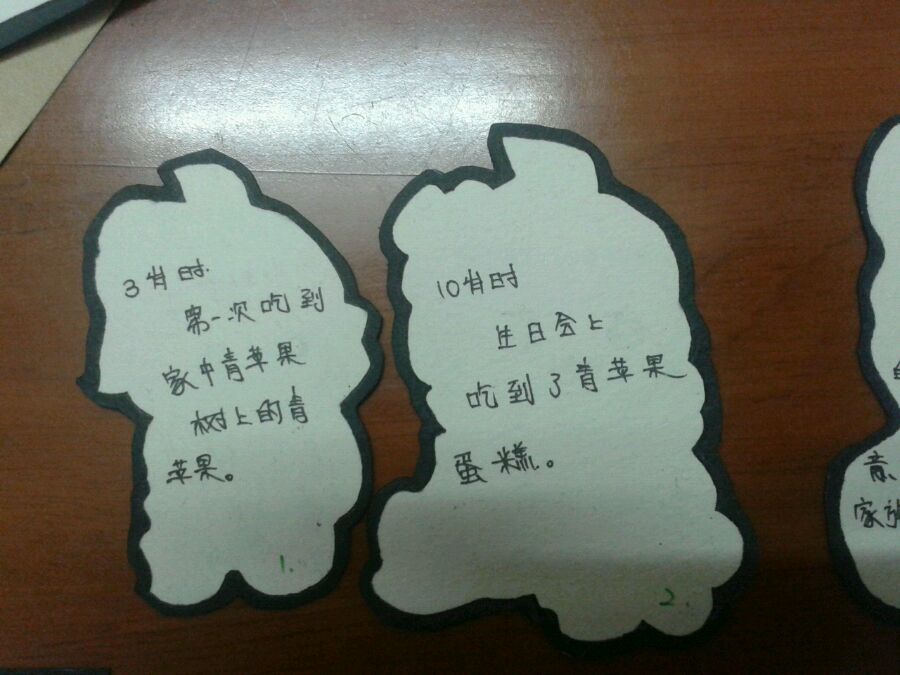 3岁时
第一次吃到
家中青苹果
树上的青
苹果。
1.
10岁时
生日会上
吃到了青苹果
蛋糕。
2.
青
家族